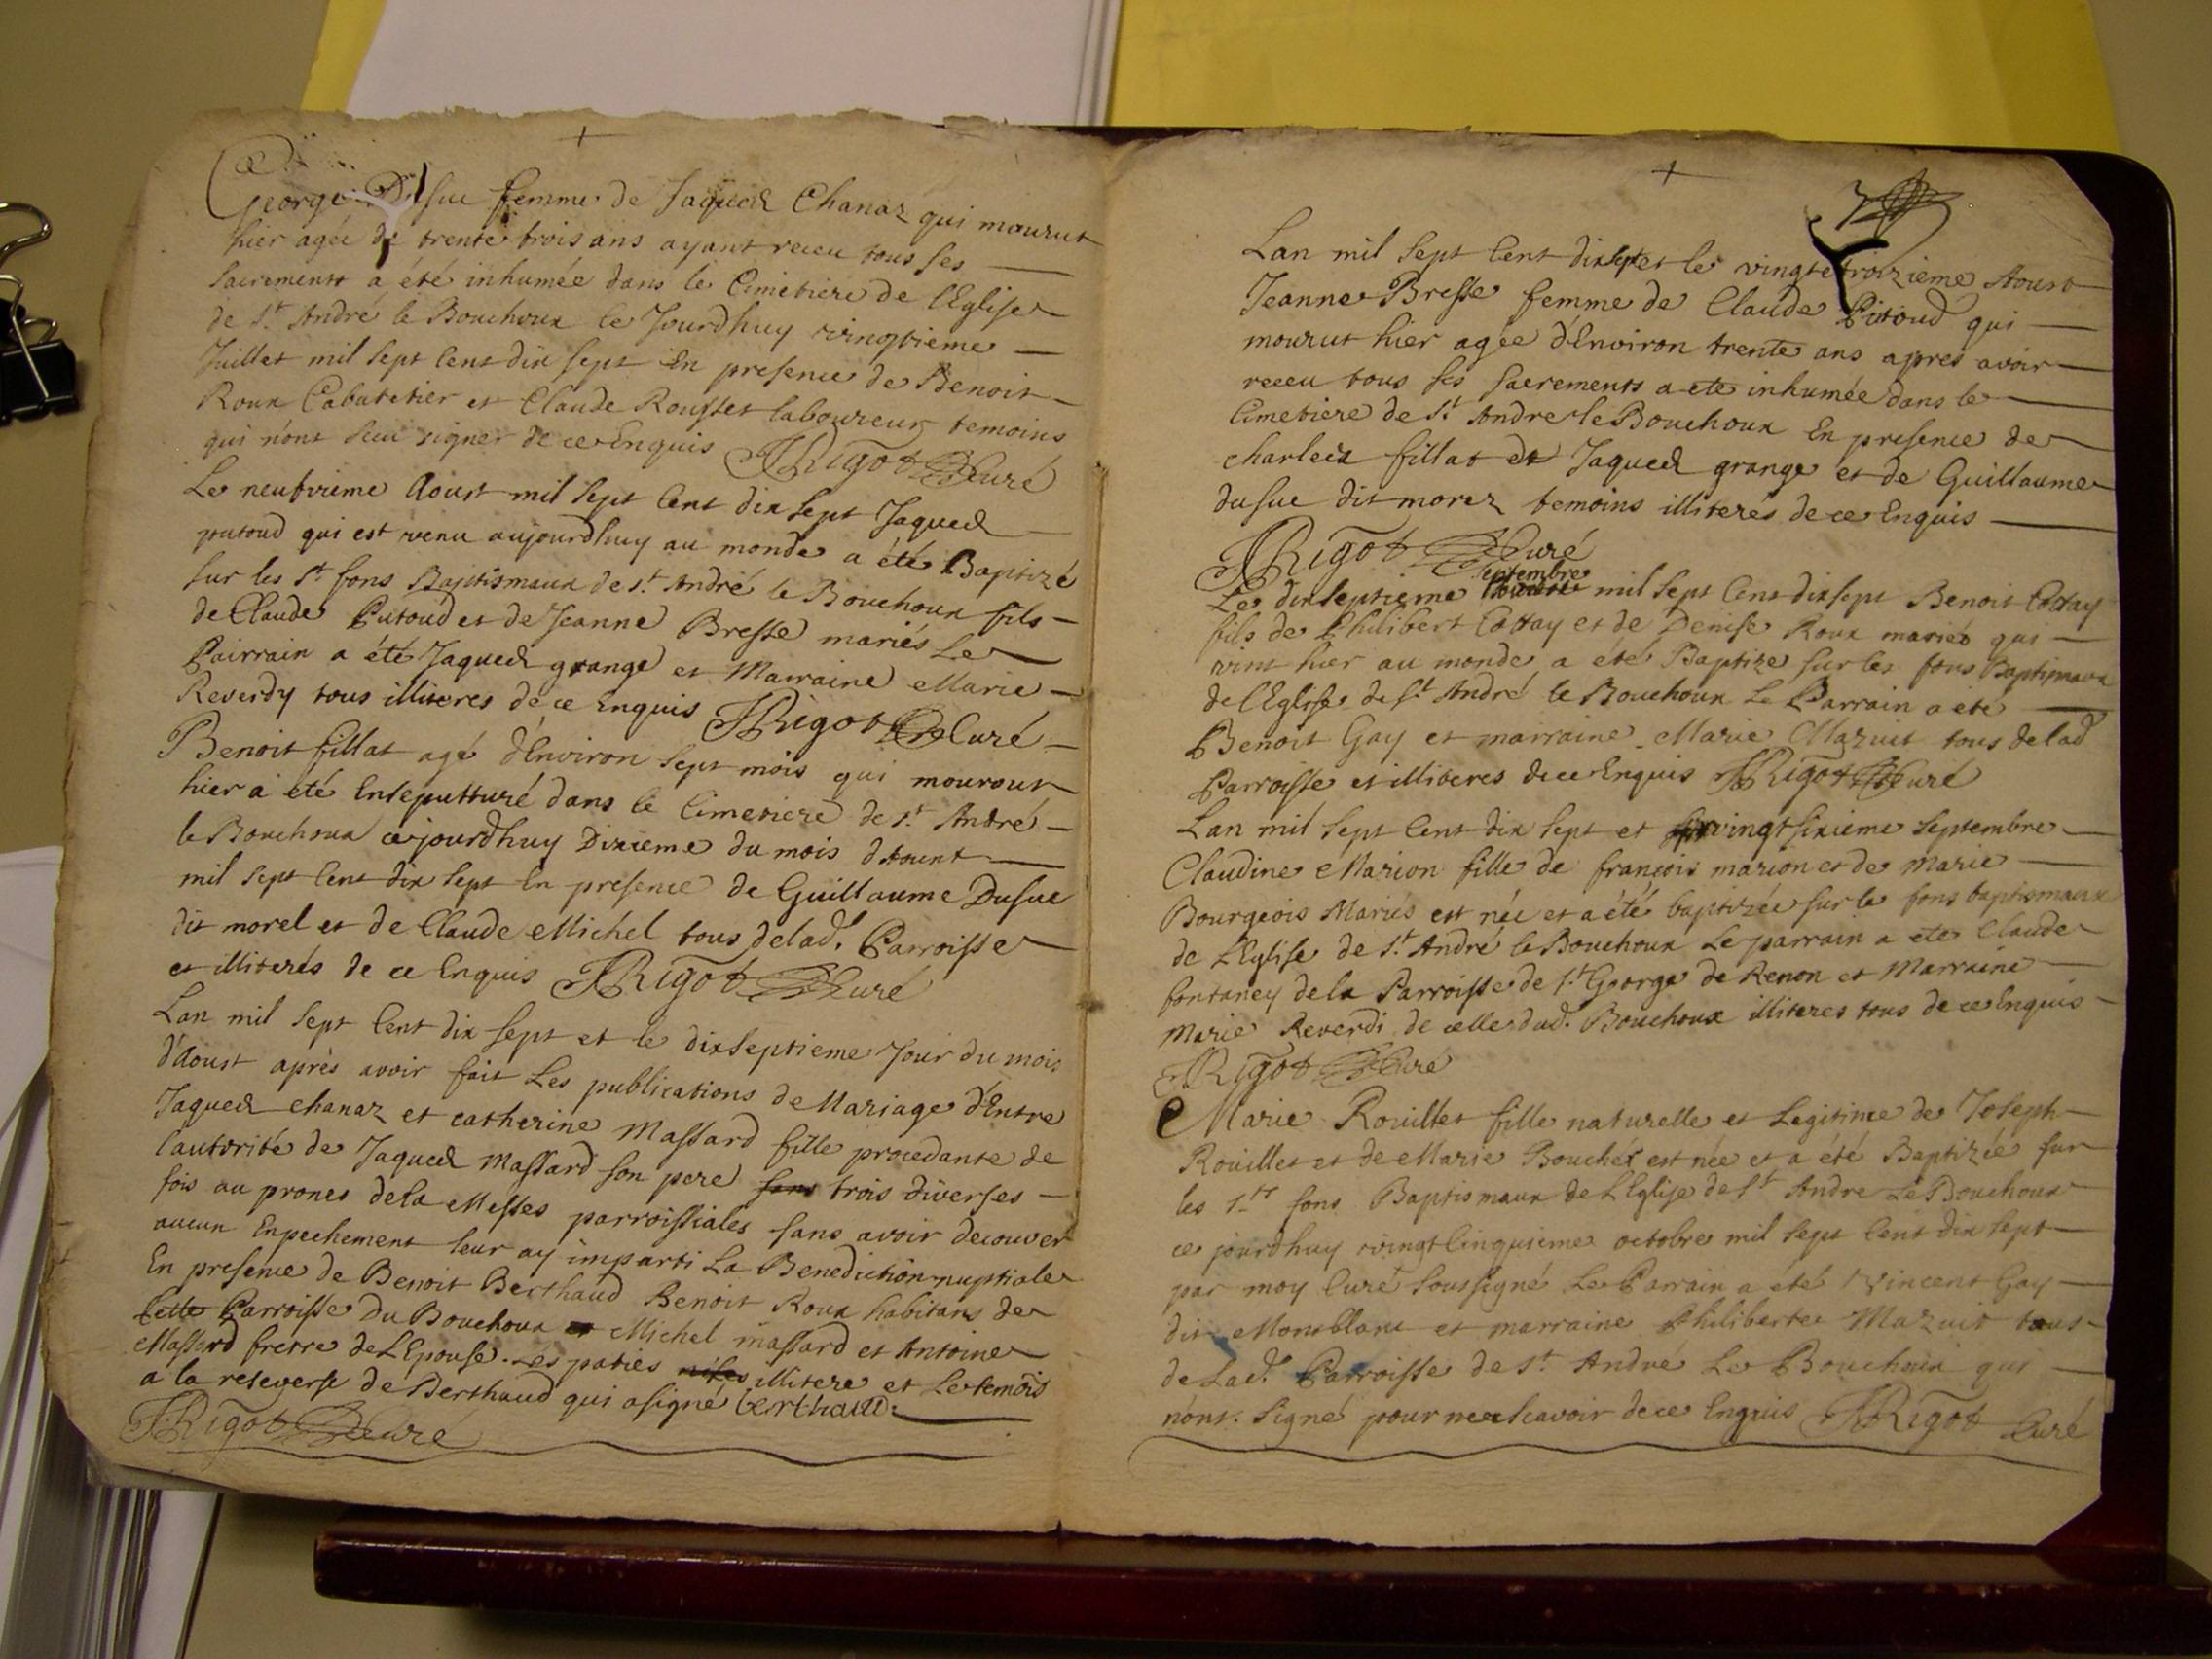 George Dufue femme de Jaques Chanaz qui mourut
hier agée de trente trois ans ayant receu tous ses
sacrements a été inhumée dans le Cimetiere de l'Eglise
de St. André le Bouchoux ce Jourdhuy vingtieme
Juillet mil sept cent dix sept En presence de Benoit
Roux Cabatetier et Claude Rousset laboureur temoins
qui n'ont sceu signer de ce Enquis JRigot Curé
Le neufvieme Aoust mil sept cent dix sept Jaques
putoud qui est venu aujourdhuy au monde a été Baptizé
sur les St. fons Baptismaux de St. André le Bouchoux fils
de Claude Putoud et de Jeanne Bresse mariés Le
Pairrain a été Jaques grange et Marraine Marie
Reverdy tous illiteres de ce Enquis JRigot Curé
Benoit fillat agé d'Environ sept mois qui mourout
hier a été Enseputturé dans le Cimetiere de St. André
le Bouchoux cejourdhuy Dixieme du mois d'Aoust
mil sept cent dix sept En presence de Guillaume Dusue
dit morel et de Claude Michel tous delad. Parroisse
et illiterés de ce Enquis JRigot Curé
Lan mil sept cent dix sept et le dixseptieme Jour du mois
d'Aoust après avoir fait Les publications de Mariage d'Entre
Jaques chanaz et catherine Massard fille procedante de
l'autorité de Jaques Massard son pere sans trois diverses
fois au prones dela Messes parroissiales sans avoir decouver
aucun Enpechement leur ay imparti La Benediction nuptiale
En presence de Benoit Berthaud Benoit Roux habitans de
Cette Parroisse Du Bouchoux et Michel massard et Antoine
Massard frerre de LEpouse. Les paties illitere et Le temois
a la reseverse de Berthaud qui a signé berthaud.
JRigot Curé
Lan mil sept cent dixsept et le vingt et troizieme Aoust
Jeanne Bresse femme de Claude Putoud qui
mourut hier agée d'Environ trente ans apres avoir
receu tous ses sacrements a ete inhumée dans le
Cimetiere de St. Andre le Bouchoux En presence de
charles fillat de Jaques grange et de Guillaume
dusue dit morez temoins illiterés de ce Enquis
JRigot Curé
septembre
Le dixseptieme mil sept cent dixsept Benoit Cottay
fils de Philibert Cottay et de Denise Roux mariés qui
vint hier au monde a eté Baptize sur les fons Baptismaux
de l'Eglise de St. André le Bouchoux Le Parrain a été
Benoit Gay et marraine Marie Mazuit tous delad
Parroisse et illiteres de ce Enquis JRigot Curé
Lan mil sept cent dix sept et vingt sixieme septembre
Claudine Marion fille de françois marion et de Marie
Bourgeois Mariés est née et a été baptizée sur le fons baptismaux
de LEglise de St. André le Bouchoux Le parrain a ete Claude
fontaney dela Parroisse de St. George de Renon et Marraine
Marie Reverdi de celle dud. Bouchoux illiteres tous de ce Enquis
JRigot Curé
Marie Rouillet fille naturelle et Legitime de Joseph
Rouillet et de Marie Bouchét est née et a été Baptizée sur
les Sts fons Baptismaux de LEglise de St Andre Le Bouchoux
ce jourdhuy vingt Cinquieme octobre mil sept cent dix sept
par moy Curé soussigné Le Parrain a été Vincent Gay
dit Montblanc et marraine Philiberte Mazuit tous
de Lad. Parroisse de St. André Le Bouchoux qui
n'ont signé pour ne scavoir de ce Enquis JRigot Curé